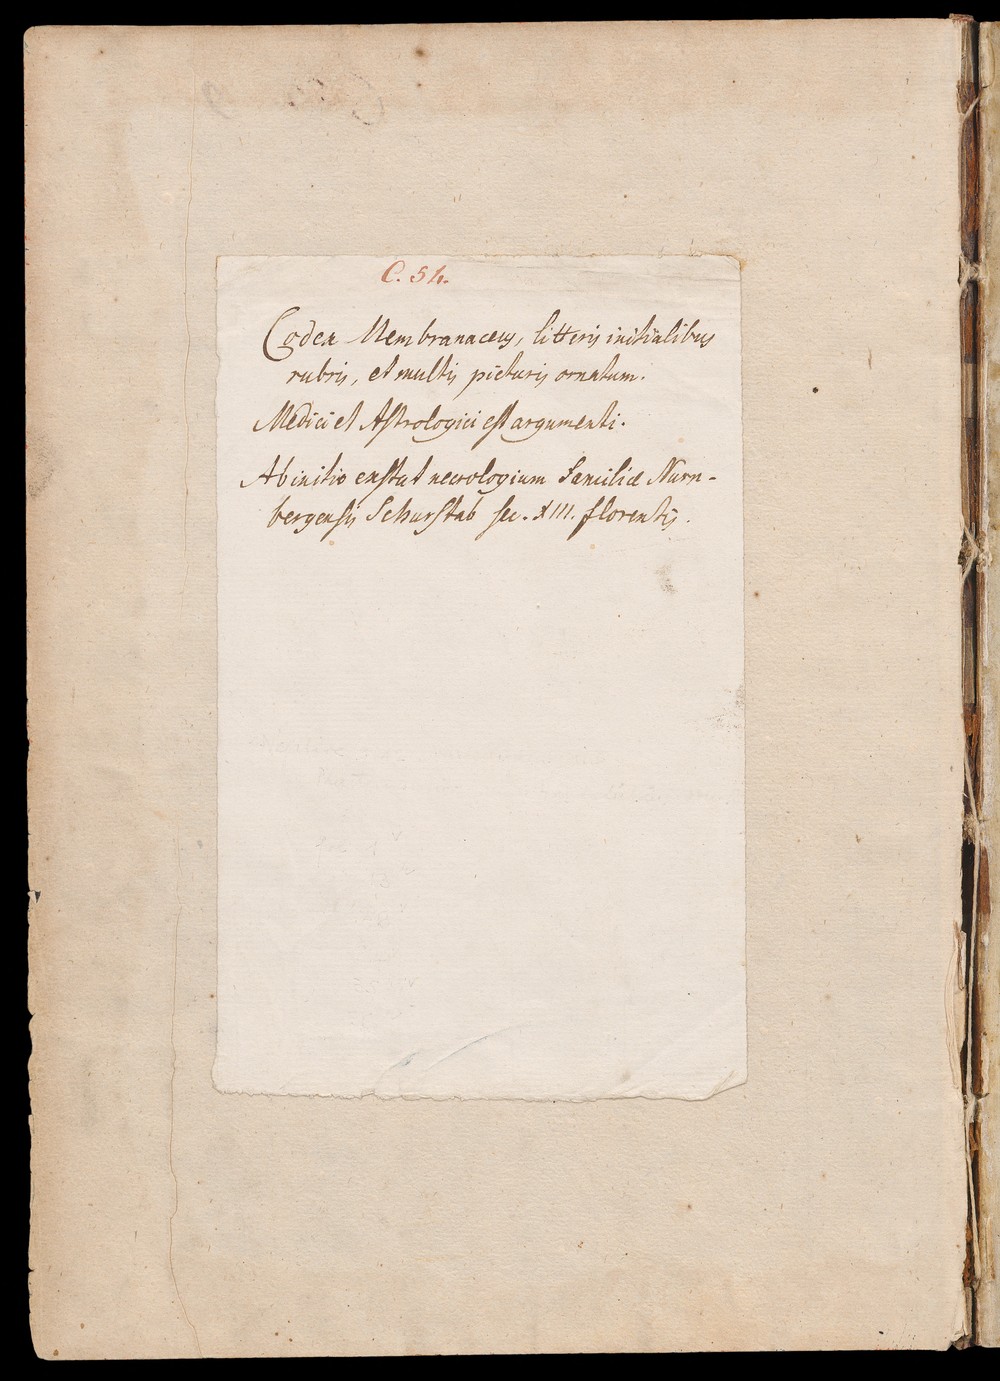 C. 54.
Codex Membranaceus, litteris initialibus
rubris, et multis picturis ornatum.
Medici et Astrologici est argumenti.
Ab initio exstat necrologium Familiæ Nurn-
bergensis Schurstab sec. XIII. florentis.